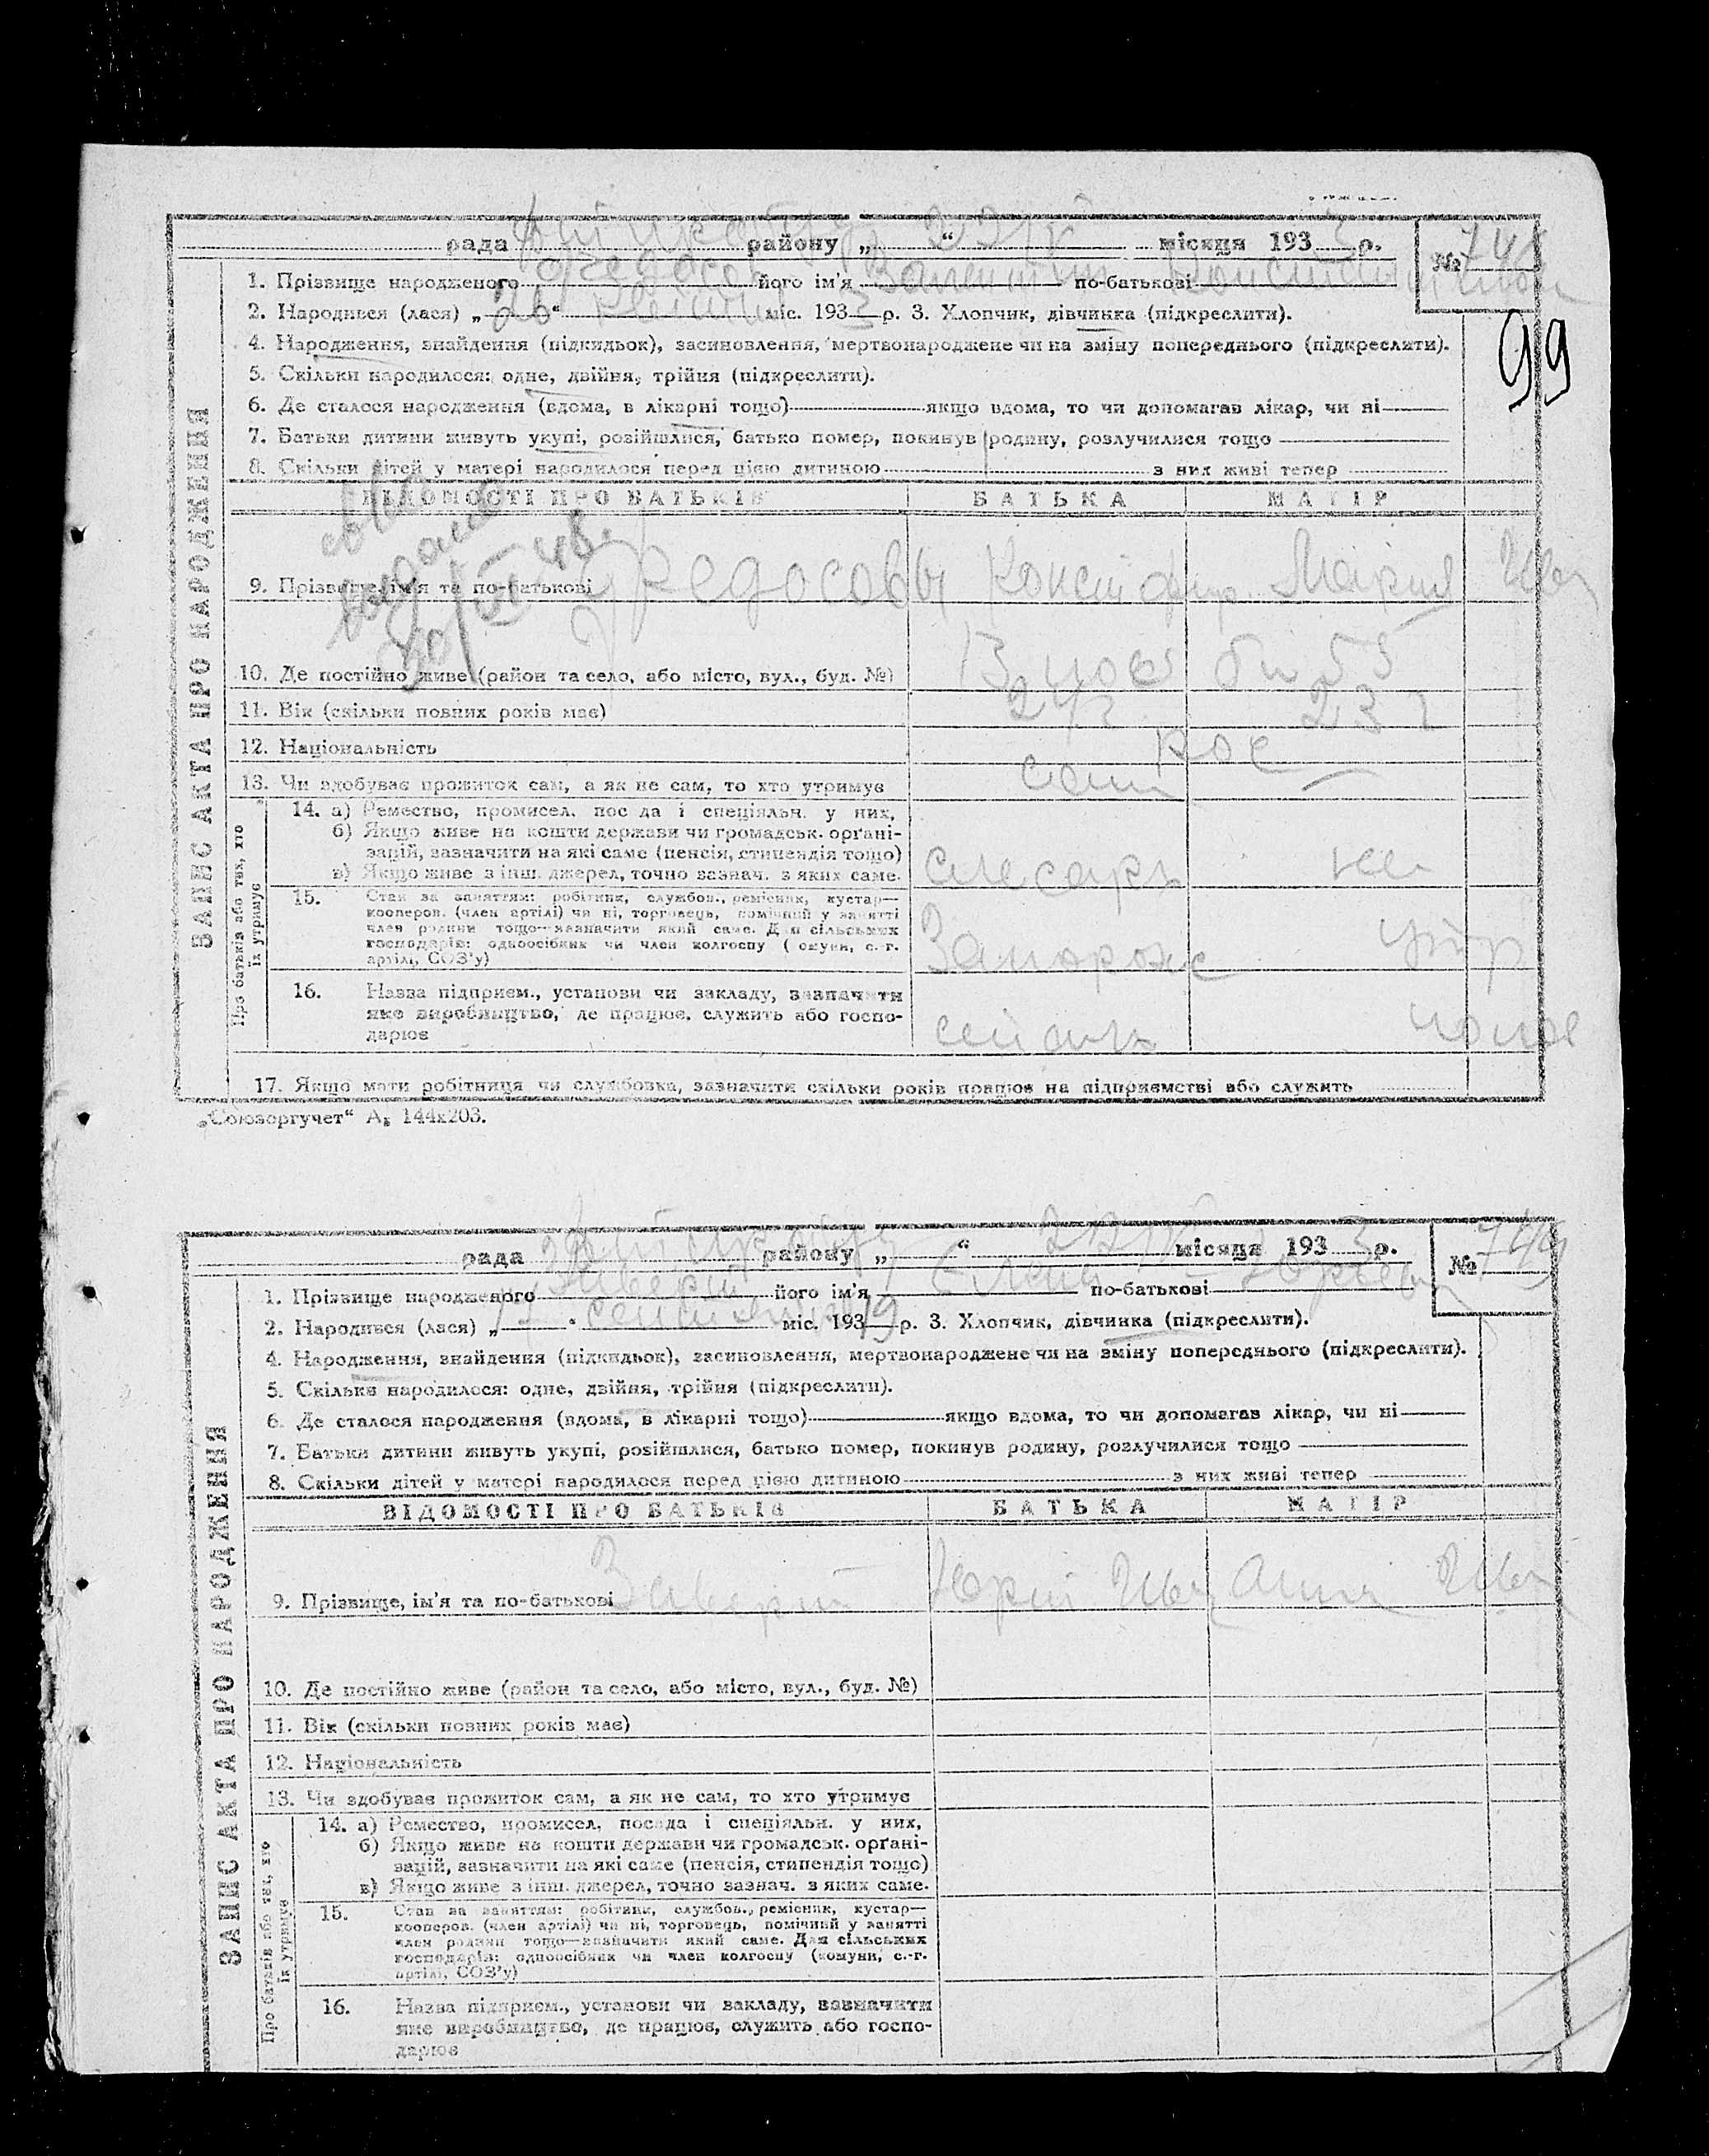 рада району „ “ 22/V місяця 193 3 р.
№ 748
1. Прізвище народженого його ім'я Валентин по-батькові
2. Народився (лася) „ 26 “ міс. 193 3 р. 3. Хлопчик, дівчинка (підкреслити).
99
4. Народження, знайдення (підкидьок), засиновлення, мертвонароджене чи на зміну попереднього (підкреслити).
5. Скільки народилося: одне, двійня, трійня (підкреслити).
6. Де сталося народження (вдома, в лікарні тощо) якщо вдома, то чи допомагав лікар, чи ні
7. Батьки дитини живуть укупі, розійшлися, батько помер, покинув родину, розлучилися тощо
8. Скільки дітей у матері народилося перед цією дитиною з них живі тепер
ВІДОМОСТІ ПРО БАТЬКІВ БАТЬКА МАТІР
9. Прізвище, ім'я та по-батькові Федосовы Мария Ив
10. Де постійно живе (район та село, або місто, вул., буд. №) 13 пос 55
11. Вік (скільки повних років має) 24 23
12. Національність рос
13. Чи здобуває прожиток сам, а як не сам, то хто утримує сам
ЗАПИС АКТА ПРО НАРОДЖЕННЯ
Про батьків або тих, хто їх утримує
14. а) Ремество, промисел, посада і спеціяльн. у них,
б) Якщо живе на кошти держави чи громадськ. орґані-
зацій, зазначити на які саме (пенсія, стипендія тощо)
в) Якщо живе з інш. джерел, точно зазнач. з яких саме.
слесарь
15. Стан за заняттям: робітник, службов., ремісник, кустар—
кооперов. (член артілі) чи ні, торговець, помічний у занятті
член родини тощо—зазначити який саме. Для сільських
господарів: одноосібник чи член колгоспу (комуни, с.-г.
артілі, СОЗ'у)
Запорож
16. Назва підприєм., установи чи закладу, зазначити
яке виробництво, де працює, служить або госпо-
дарює
сталь
17. Якщо мати робітниця чи службовка, зазначити скільки років працює на підприємстві або служить
„Союзоргучет“ А₅ 144х203.
рада району „ “ 22/V місяця 193 3 р.
№ 749
1. Прізвище народженого його ім'я по-батькові
2. Народився (лася) „ “ міс. 193 р. 3. Хлопчик, дівчинка (підкреслити).
4. Народження, знайдення (підкидьок), засиновлення, мертвонароджене чи на зміну попереднього (підкреслити).
5. Скільки народилося: одне, двійня, трійня (підкреслити).
6. Де сталося народження (вдома, в лікарні тощо) якщо вдома, то чи допомагав лікар, чи ні
7. Батьки дитини живуть укупі, розійшлися, батько помер, покинув родину, розлучилися тощо
8. Скільки дітей у матері народилося перед цією дитиною з них живі тепер
ВІДОМОСТІ ПРО БАТЬКІВ БАТЬКА МАТІР
9. Прізвище, ім'я та по-батькові Юрий Ив Анна Ив
10. Де постійно живе (район та село, або місто, вул., буд. №)
11. Вік (скільки повних років має)
12. Національність
13. Чи здобуває прожиток сам, а як не сам, то хто утримує
ЗАПИС АКТА ПРО НАРОДЖЕННЯ
Про батьків або тих, хто їх утримує
14. а) Ремество, промисел, посада і спеціяльн. у них,
б) Якщо живе на кошти держави чи громадськ. орґані-
зацій, зазначити на які саме (пенсія, стипендія тощо)
в) Якщо живе з інш. джерел, точно зазнач. з яких саме.
15. Стан за заняттям: робітник, службов., ремісник, кустар—
кооперов. (член артілі) чи ні, торговець, помічний у занятті
член родини тощо—зазначити який саме. Для сільських
господарів: одноосібник чи член колгоспу (комуни, с.-г.
артілі, СОЗ'у)
16. Назва підприєм., установи чи закладу, зазначити
яке виробництво, де працює, служить або госпо-
дарює